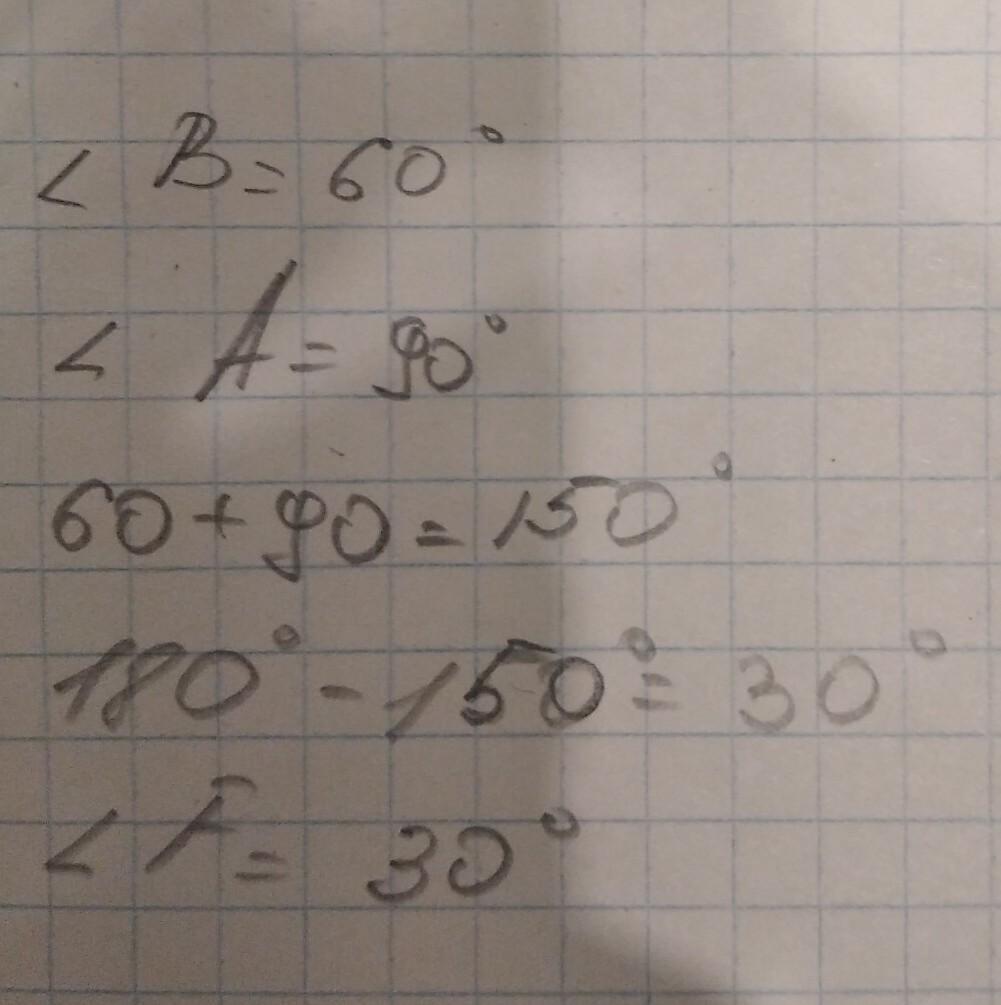 ∠ B = 60°
∠ A = 90°
60 + 90 = 150°
180° - 150° = 30°
∠ F = 30°